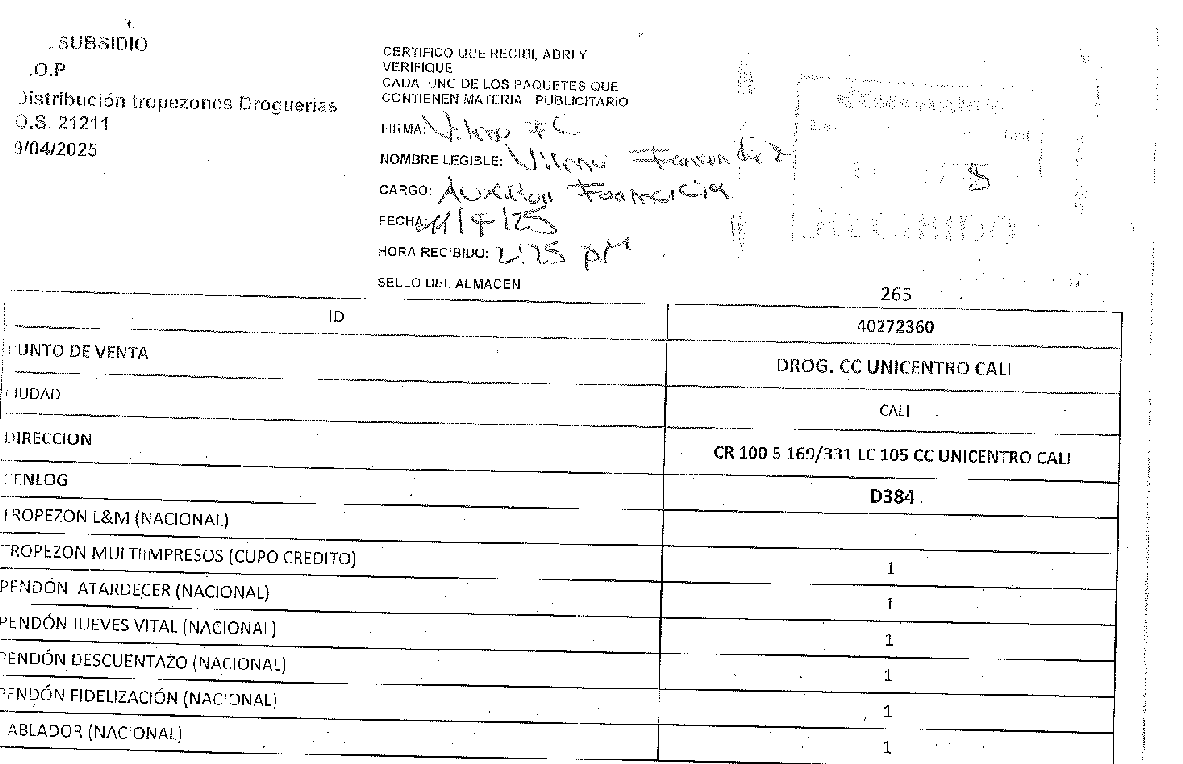 SUBSIDIO
.O.P
Distribución tropezones Droguerias
O.S. 21211
9/04/2025
CERTIFICO QUE RECIBI, ABRI Y
VERIFIQUE
CADA UNO DE LOS PAQUETES QUE
CONTIENEN MATERIAL PUBLICITARIO
FIRMA:
NOMBRE LEGIBLE:
CARGO: Auxiliar Farmacia
FECHA: 11/4/25
HORA RECIBIDO: 2:25 PM
SELLO DEL ALMACEN
RECIBIDO
265
ID 40272360
PUNTO DE VENTA DROG. CC UNICENTRO CALI
CIUDAD CALI
DIRECCION CR 100 5 169/331 LC 105 CC UNICENTRO CALI
CENLOG D384
TROPEZON L&M (NACIONAL)
TROPEZON MULTIIMPRESOS (CUPO CREDITO) 1
PENDÓN ATARDECER (NACIONAL) 1
PENDÓN JUEVES VITAL (NACIONAL) 1
PENDÓN DESCUENTAZO (NACIONAL) 1
PENDÓN FIDELIZACIÓN (NACIONAL) 1
TABLADOR (NACIONAL) 1